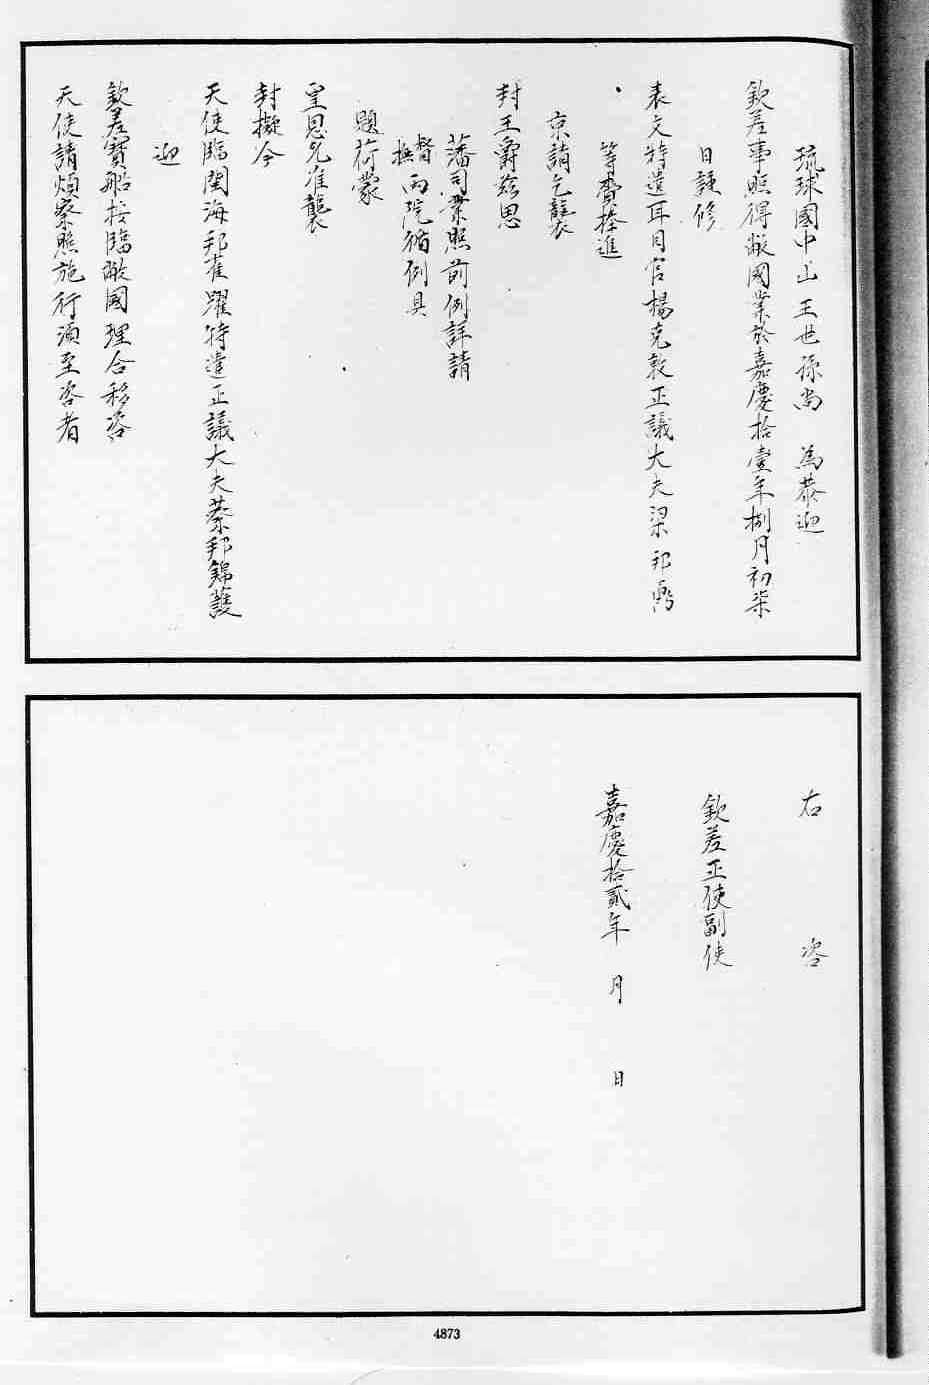 琉球國中山王世孫尚　為恭迎
欽差事照得敝國業於嘉慶拾壹年捌月初柒
日謹修
表文特遣耳目官楊克敦正議大夫梁邦弼
等賫捧進
京請乞襲
封王爵茲思
藩司業照前例詳請
督撫兩院循例具
題荷蒙
皇恩允准襲
封擬今
天使臨閩海邦雀躍特遣正議大夫蔡邦錦護
迎
欽差寶船按臨敝國理合移咨
天使請煩察照施行須至咨者
右　咨
欽差正使副使
嘉慶拾貳年　月　日
4873